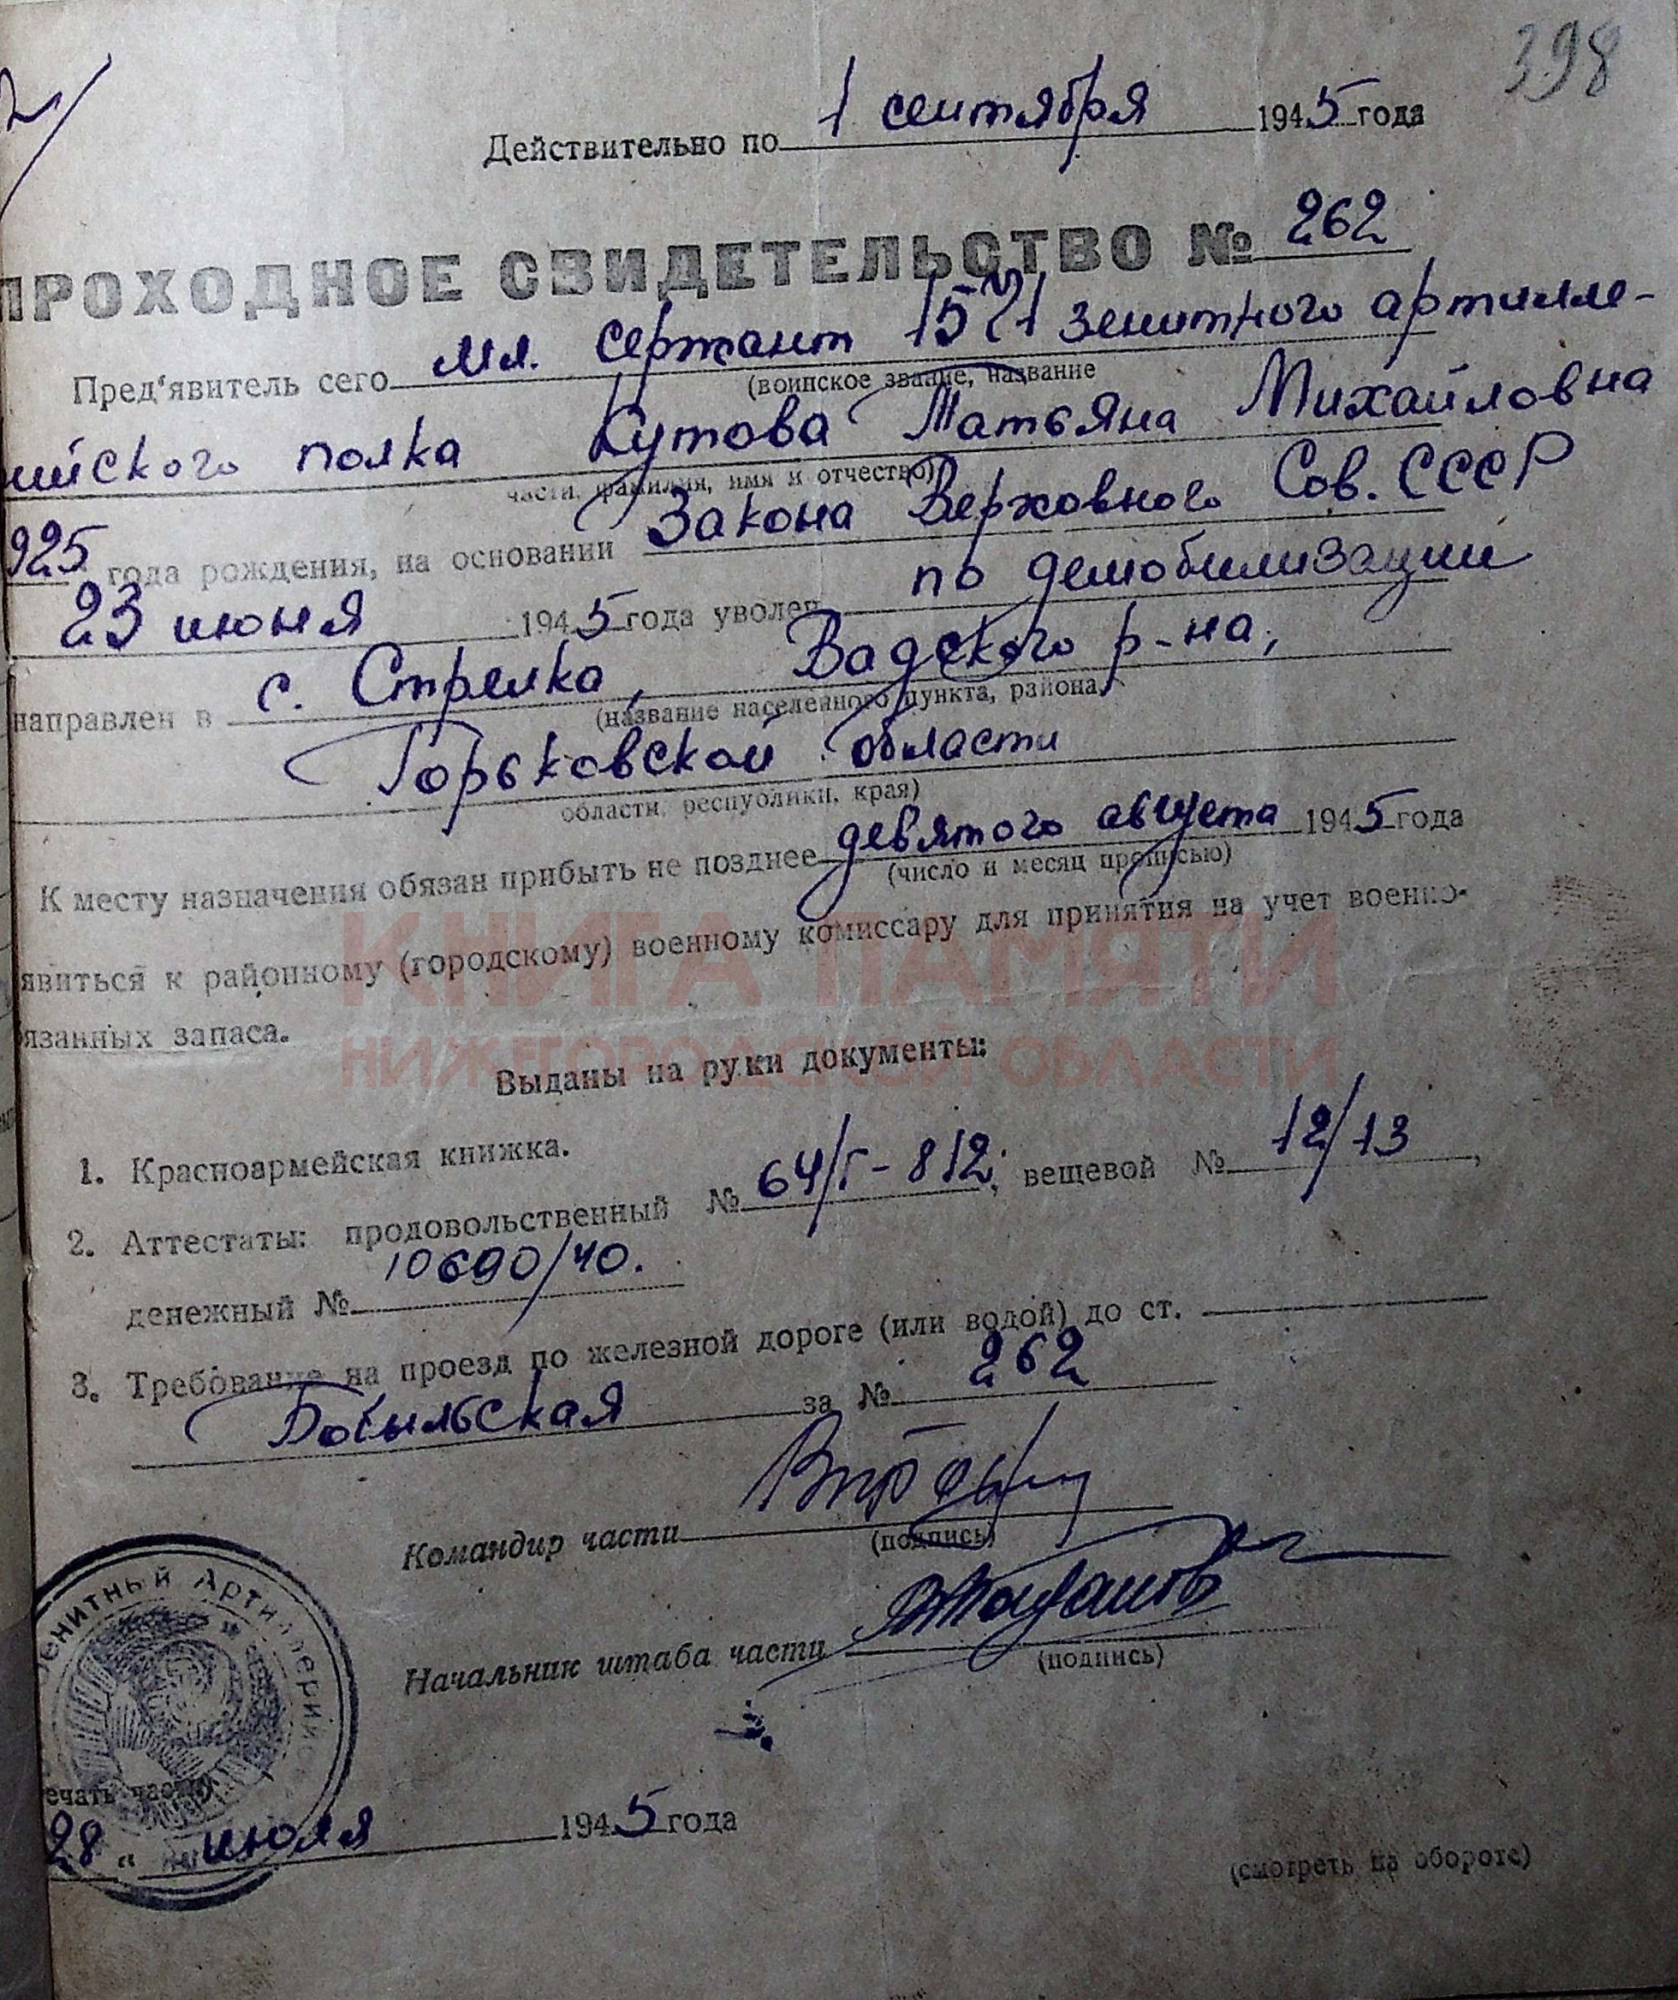 398
Действительно по 1 сентября 1945 года
ПРОХОДНОЕ СВИДЕТЕЛЬСТВО № 262
Пред'явитель сего мл. сержант 1571 зенитного артилле-
(воинское звание, название
ийского полка Кутова Татьяна Михайловна
части, фамилия, имя и отчество)
925 года рождения, на основании Закона Верховного Сов. СССР
23 июня 1945 года уволен по демобилизации
направлен в с. Стрелка, Вадского р-на,
(название населенного пункта, района,
Горьковской области
области, республики, края)
К месту назначения обязан прибыть не позднее девятого августа 1945 года
(число и месяц прописью)
явиться к районному (городскому) военному комиссару для принятия на учет военно-
язанных запаса.
КНИГА ПАМЯТИ
НИЖЕГОРОДСКОЙ ОБЛАСТИ
Выданы на руки документы:
1. Красноармейская книжка.
2. Аттестаты: продовольственный № 64/г-812; вещевой № 12/13,
денежный № 10690/40.
3. Требование на проезд по железной дороге (или водой) до ст.
Бобыльская за № 262
Командир части
(подпись)
Начальник штаба части
(подпись)
енитный Артиллерий
ечать части)
28 " июля 1945 года
(смотреть на обороте)